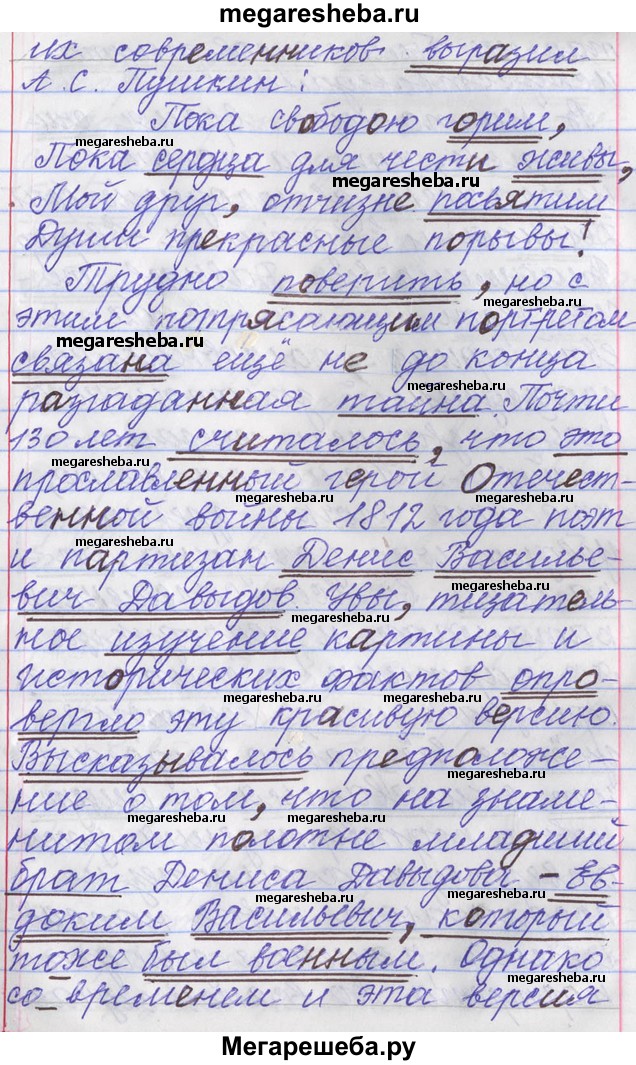 megaresheba.ru
их современников выразил
А.С. Пушкин:
megaresheba.ru
Пока свободою горим,
megaresheba.ru
megaresheba.ru
Пока сердца для чести живы,
megaresheba.ru
Мой друг, отчизне посвятим
Души прекрасные порывы!
Трудно поверить, но с
megaresheba.ru
этим потрясающим портретом
megaresheba.ru
связана ещё не до конца
megaresheba.ru
разгаданная тайна. Почти
130 лет считалось, что это
megaresheba.ru
прославленный герой Отечест-
megaresheba.ru
венной войны 1812 года поэт
megaresheba.ru
и партизан Денис Василье-
megaresheba.ru
вич Давыдов. Увы, тщатель-
megaresheba.ru
ное изучение картины и
исторических фактов опро-
megaresheba.ru
megaresheba.ru
вергло эту красивую версию.
megaresheba.ru
Высказывалось предположе-
megaresheba.ru
ние о том, что на знаме-
megaresheba.ru
нитом полотне младший
megaresheba.ru
брат Дениса Давыдова – Ев-
megaresheba.ru
доким Васильевич, который
megaresheba.ru
тоже был военным. Однако
megaresheba.ru
со временем и эта версия
Мегарешеба.ру